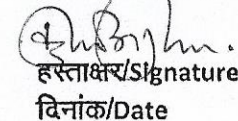 हस्ताक्षर/Signature
दिनांक/Date